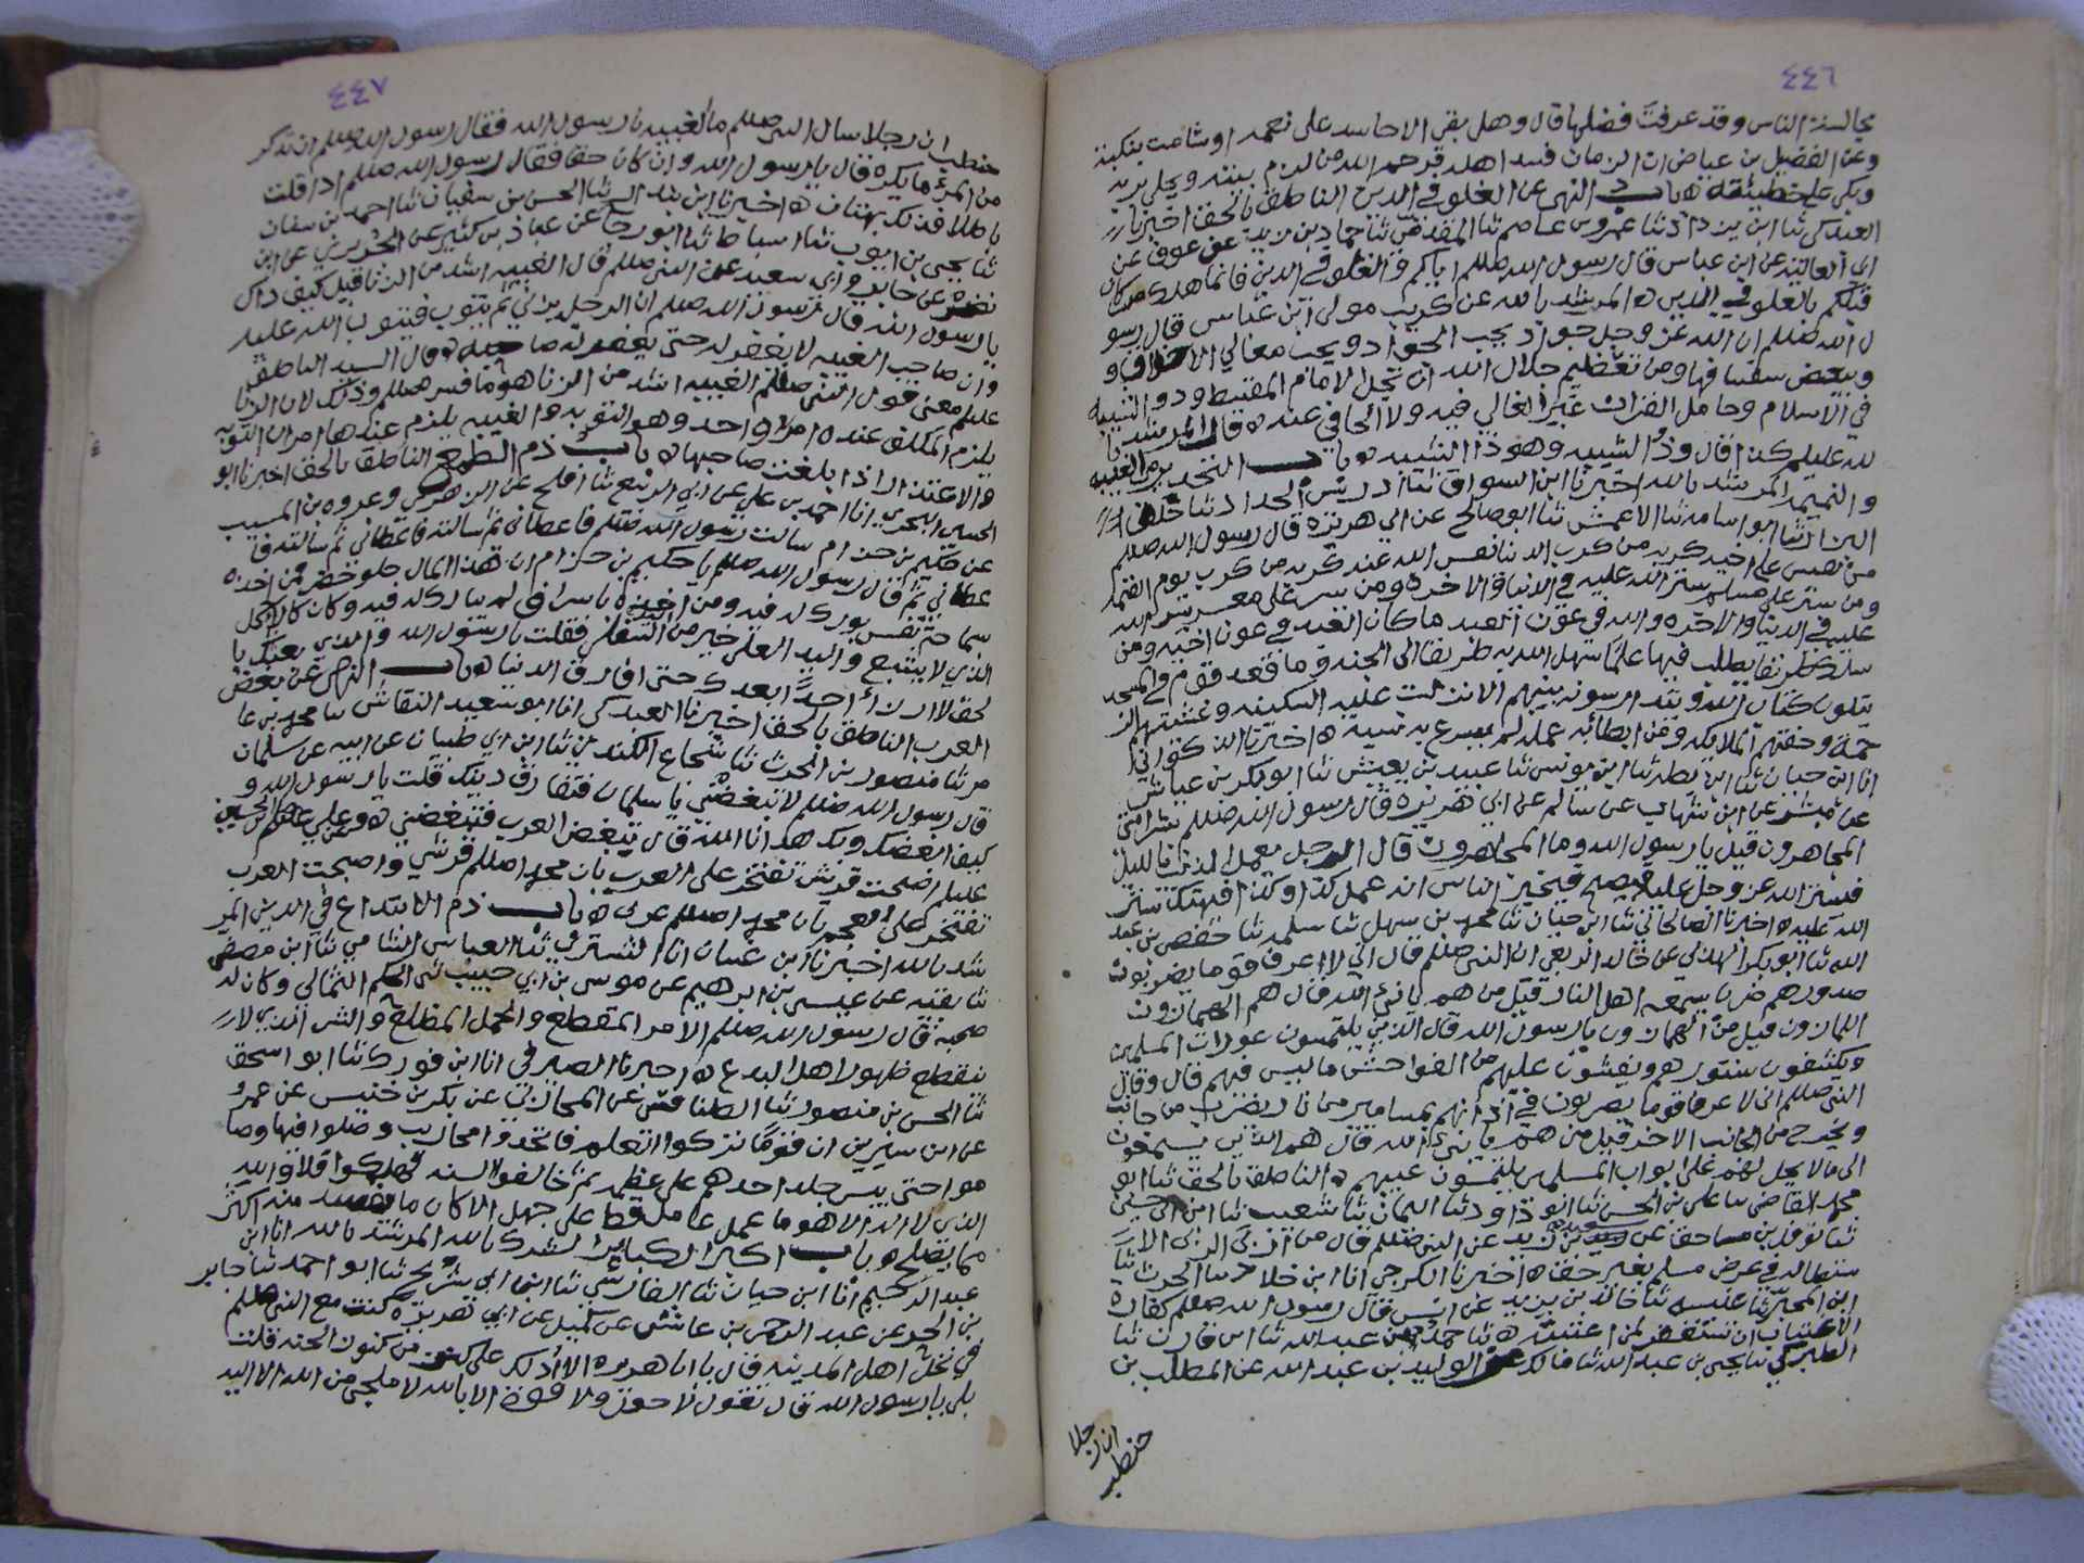 ٤٤٦
مجالسة الناس وقد عرفت فضلها قال وهل بقي الا حاسد على نعمه او شامت بنكبة
وعن الفضيل بن عياض ان الزمان فسد اهله فرحم الله من لزم بيته
وبكى على خطيئته ه باب النهي عن الغلو في الدين الناطق بالحق اخبرنا
العبدكي ثنا ابن يزداد ثنا عمرو بن عاصم ثنا المقدمي ثنا حماد بن زيد عن عوف عن
ابي العالية عن ابن عباس قال رسول الله صللم اياكم والغلو في الدين فانما هلك من كان
قبلكم بالغلو في الدين ه المرشد بالله عن كريب مولى ابن عباس قال رسو
ل الله صللم ان الله عز وجل جواد يحب الجواد ويحب معالي الاخلاق و
ويبغض سفسافها ومن تعظيم جلال الله ان تجل الامام المقسط وذو الشيبة
في الاسلام وحامل القران غير الغالي فيه ولا الجافي عنه ه قال المرشد با
لله عليلم كذا قال وذو الشيبه وهو ذا الشيبه ه باب التحذير من الغيبه
والنميمه المرشد بالله اخبرنا ابن السواق ثنا ادريس الحداد ثنا خلف
البزار ثنا ابو اسامه ثنا الاعمش ثنا ابو صالح عن ابي هريرة قال رسول الله صللم
من نفس على اخيه كربه من كرب الدنيا نفس الله عنه كربه من كرب يوم القيمه
ومن ستر على مسلم ستر الله عليه في الدنيا والاخره ومن يسر على معسر يسر الله
عليه في الدنيا والاخره والله في عون العبد ما كان العبد في عون اخيه ومن
سلك طريقا يطلب فيها علما سهل الله به طريقا الى الجنه وما قعد قوم في المسجد
يتلون كتاب الله ويتدارسونه بينهم الا نزلت عليهم السكينه وغشيتهم الر
حمة وحفتهم الملايكه ومن ابطا به عمله لم يسرع به نسبه ه اخبرنا الذكواني
انا ابن حبان ثنا ابن بطه ثنا ابن يونس ثنا عبيد بن يعيش ثنا ابو بكر بن عياش
عن مبشر عن ابن شهاب عن سالم عن ابي هريرة قال رسول الله صللم شرامتي
المجاهرون قيل يا رسول الله وما المجاهرون قال الرجل يعمل الذنب بالليل
فيستر الله عز وجل عليه فيصبح فيخبر الناس انه عمل كذا وكذا فيهتك ستر
الله عليه ه اخبرنا الصالحاني ثنا ابن حيان ثنا محمد بن سهل ثنا سلمه ثنا حفص بن عبد
الله ثنا ابو بكر الهذلي عن خالد الربعي ان النبي صللم قال اني لا اعرف قوما يضربون
صدورهم ضربا يسمعه اهل النار قيل من هم يا نبي الله قال هم الهمازون
اللمازون قيل من الهمازون يا رسول الله قال الذين يلتمسون عورات المسلمين
ويكشفون ستورهم ويفشون عليهم من الفواحش ما ليس فيهم قال وقال
النبي صللم اني لا عرف قوما يضربون في اذانهم بمسامير من نار يضرب من جانب
ويخرج من الجانب الاخر قيل من هم يا نبي الله قال هم الذين يستمعون
الى ما لا يحل لهم على ابواب المسلمين يلتمسون عيبهم ه الناطق بالحق ثنا ابو
محمد القاضي ثنا علي بن الحسن ثنا ابو داود ثنا اليمان ثنا شعيب ثنا ابن ابي حسين
ثنا نوفل بن مساحق عن سعيد بن زيد عن النبي صللم قال من اربى الربى الا
ستطاله في عرض مسلم بغير حق ه اخبرنا الكرجي انا ابن خلاد ثنا الحرث ثنا
ابن المحبر ثنا عنبسه ثنا خالد بن يزيد عن انس قال رسول الله صللم كفارة
الاغتياب ان تستغفر لمن اغتبته ه ثنا حمد بن عبد الله ثنا ابن قارن ثنا
الطبركي ثنا يحيى بن عبد الله ثنا مالك عن الوليد بن عبد الله عن المطلب بن
حنطب
ان رجلا
٤٤٧
حنطب ان رجلا سال النبي صللم ما الغيبه يا رسول الله فقال رسول الله صللم ان تذكر
من المرء ما يكره قال يا رسول الله وان كان حقا فقال رسول الله صللم اذا قلت
باطلا فذلك بهتان ه اخبرنا ابن بندار ثنا الحسن بن سفيان ثنا احمد بن سفيان
ثنا يحيى بن ايوب ثنا اسباط ثنا ابو رجا عن عباد بن كثير عن الجريري عن ابي
نضره عن جابر وابي سعيد عن النبي صللم قال الغيبه اشد من الزنا قيل كيف ذاك
يا رسول الله قال رسول الله صللم ان الرجل يزني ثم يتوب فيتوب الله عليه
وان صاحب الغيبه لا يغفر له حتى يغفر له صاحبه ه قال السيد الناطق
عليلم معنى قول النبي صللم الغيبه اشد من الزنا هو ما فسر صللم وذلك لان الزنا
يلزم المكلف عنده امر واحد وهو التوبه والغيبه يلزم عندها امران التوبه
والاعتذار اذا بلغت صاحبها ه باب ذم الطمع الناطق بالحق اخبرنا ابو
الحسين البحري انا احمد بن علي عن ابي الربيع ثنا افلح عن الزهري وعروه بن المسيب
عن حكيم بن حزام سالت رسول الله صللم فاعطاني ثم سالته فاعطاني ثم سالته فا
عطاني ثم قال رسول الله صللم يا حكيم بن حزام ان هذا المال حلو خضر فمن اخذه
بسماحة نفس بورك له فيه ومن اخذه باسراف لم يبارك له فيه وكان كالاكل
الذي لا يشبع واليد العليا خير من اليد السفلى فقلت يا رسول الله والذي بعثك با
لحق لا ارزأ احدًا بعدك حتى افارق الدنيا ه باب النهي عن بغض
العرب الناطق بالحق اخبرنا العبدكي انا ابو سعيد النقاش ثنا محمد بن عا
مر ثنا منصور بن الحرث ثنا شجاع الكندي ثنا ابن ابي ظبيان عن ابيه عن سلمان
قال رسول الله صللم لا تبغضني يا سلمان فتفارق دينك قلت يا رسول الله و
كيف ابغضك وبك هدانا الله قال تبغض العرب فتبغضني ه وعن علي بن الحسين
عليلم اضحت قريش تفتخر على العرب بان محمدا صللم قرشي واصبحت العرب
تفتخر على العجم بان محمدا صللم عربي ه باب ذم الابتداع في الدين المر
شد بالله اخبرنا ابن غسان انا التستري ثنا العباس الشامي ثنا ابن مصفى
ثنا بقيه عن عيسى بن ابرهيم عن موسى بن ابي حبيب ثني الحكم الثمالي وكان له
صحبة قال رسول الله صللم الامر المفظع والحمل المظلع والشر الذي لا
ينقطع ظهور اهل البدع ه اخبرنا الصيرفي انا ابن فورك ثنا ابو اسحق
ثنا الحسن بن منصور ثنا الطنافسي عن المحاربي عن بكر بن خنيس عن عمرو
عن ابن سيرين ان قومًا تركوا العلم فاتخذوا محاريب وصلوا فيها وصا
موا حتى يبس جلد احدهم على عظمه ثم خالفوا السنه فهلكوا فلا والله
الذي لا اله الا هو ما عمل عامل قط على جهل الا كان ما يفسد منه اكثر
مما يصلح ه باب اكبر الكباير الشرك بالله المرشد بالله انا ابن
عبد الرحيم انا ابن حيان ثنا الفارسي ثنا ابن ابي شريح ثنا ابو احمد ثنا جابر
بن الحر عن عبد الرحمن بن عابس عن كميل عن ابي هريرة كنت مع النبي صللم
في نخل اهل المدينه فقال يا ابا هريره الا ادلك على كنز من كنوز الجنه قلت
بلى يا رسول الله قال تقول لا حول ولا قوة الا بالله لا ملجى من الله الا اليه